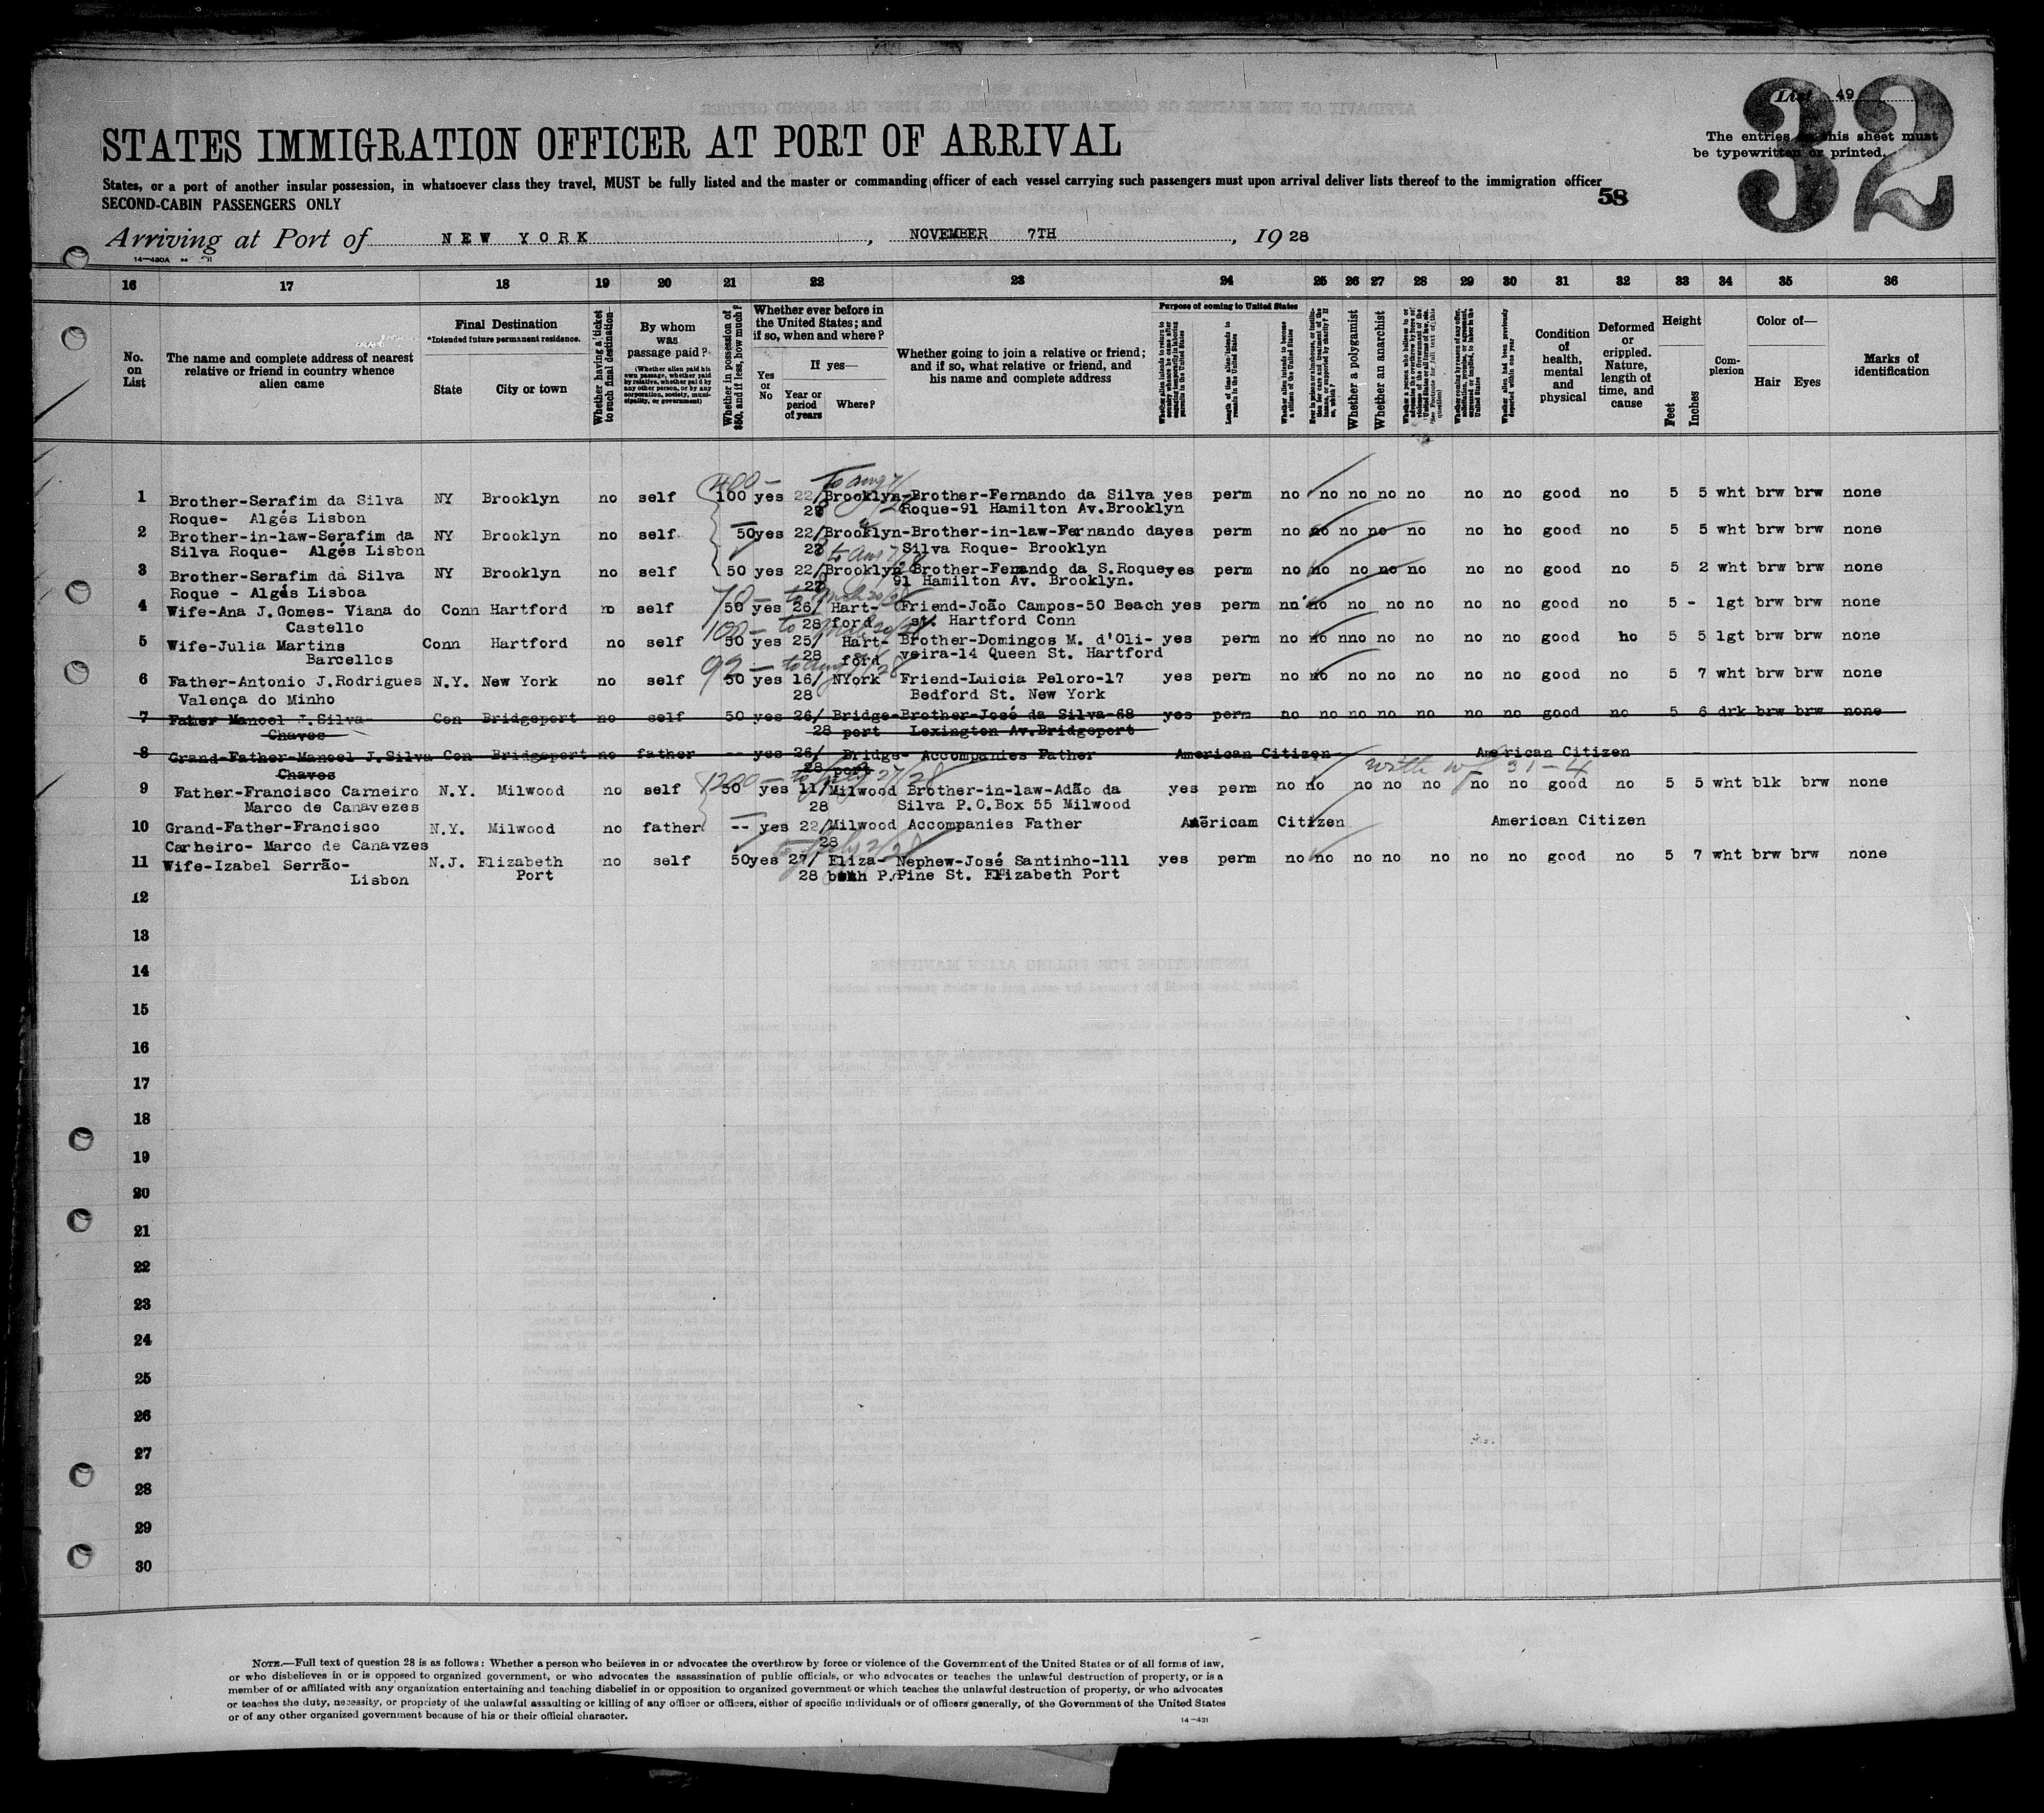 List 49
32
The entries on this sheet must
be typewritten or printed.
STATES IMMIGRATION OFFICER AT PORT OF ARRIVAL
States, or a port of another insular possession, in whatsoever class they travel, MUST be fully listed and the master or commanding officer of each vessel carrying such passengers must upon arrival deliver lists thereof to the immigration officer
58
SECOND-CABIN PASSENGERS ONLY
Arriving at Port of NEW YORK, NOVEMBER 7TH, 1928
14-430A
16 17 18 19 20 21 22 23 24 25 26 27 28 29 30 31 32 33 34 35 36
No. on List
The name and complete address of nearest relative or friend in country whence alien came
Final Destination
*Intended future permanent residence.
State
City or town
Whether having a ticket to such final destination
By whom was passage paid?
(Whether alien paid his own passage, whether paid by relative, whether paid by any other person, or by any corporation, society, municipality, or government)
Whether in possession of $50, and if less, how much?
Whether ever before in the United States; and if so, when and where?
Yes or No
If yes—
Year or period of years
Where?
Whether going to join a relative or friend; and if so, what relative or friend, and his name and complete address
Purpose of coming to United States
Length of time alien intends to remain in the United States
Whether alien intends to become a citizen of the United States
Whether a polygamist
Whether an anarchist
Whether alien had been previously deported within one year
Condition of health, mental and physical
Deformed or crippled. Nature, length of time, and cause
Height
Feet
Inches
Complexion
Color of—
Hair
Eyes
Marks of identification
400 — to Aug 7/28
1 Brother-Serafim da Silva NY Brooklyn no self 100 yes 22/ Brooklyn-Brother-Fernando da Silva yes perm no no no no no no no good no 5 5 wht brw brw none
Roque- Algés Lisbon 28 Roque-91 Hamilton Av.Brooklyn
2 Brother-in-law-Serafim da NY Brooklyn no self 50 yes 22/ Brooklyn-Brother-in-law-Fernando da yes perm no no no no no no ho good no 5 5 wht brw brw none
Silva Roque- Algés Lisbon 28 Silva Roque- Brooklyn
to Aug 7/28
3 Brother-Serafim da Silva NY Brooklyn no self 50 yes 22/ Brooklyn Brother-Fernando da S.Roque yes perm no no no no no no no good no 5 2 wht brw brw none
Roque - Algés Lisboa 28 91 Hamilton Av. Brooklyn.
70 —
4 Wife-Ana J.Gomes- Viana do Conn Hartford no self 50 yes 26/ Hart- Friend-João Campos-50 Beach yes perm nn no no no no no no good no 5 - lgt brw brw none
Castello 28 ford st. Hartford Conn
100 —
5 Wife-Julia Martins Conn Hartford no self 50 yes 25/ Hart- Brother-Domingos M. d'Oli- yes perm no no nno no no no good ho 5 5 lgt brw brw none
Barcellos 28 ford veira-14 Queen St. Hartford
92 — to Aug 7/28
6 Father-Antonio J.Rodrigues N.Y. New York no self 50 yes 16/ NYork Friend-Luicia Peloro-17 yes perm no no no no no no no good no 5 7 wht brw brw none
Valença do Minho 28 Bedford St. New York
7 Father Manoel J.Silva- Con Bridgeport no self 50 yes 26/ Bridge-Brother-José da Silva-68 yes perm no no no no no no no good no 5 6 drk brw brw none
Chaves 28 port Lexington Av.Bridgeport
8 Grand-Father-Manoel J.Silva Con Bridgeport no father -- yes 26/ Bridge- Accompanies Father American Citizen American Citizen
Chaves 28 port
1200 — 27/28
9 Father-Francisco Carneiro N.Y. Milwood no self 50 yes 11/ Milwood Brother-in-law-Adão da yes perm no no no no no no no good no 5 5 wht blk brw none
Marco de Canavezes 28 Silva P.O.Box 55 Milwood
10 Grand-Father-Francisco N.Y. Milwood no father -- yes 22/ Milwood Accompanies Father Américam Citizen American Citizen
Carheiro- Marco de Canavzes 28
11 Wife-Izabel Serrão- N.J. Elizabeth no self 50 yes 27/ Eliza- Nephew-José Santinho-111 yes perm no no no no no no no good no 5 7 wht brw brw none
Lisbon Port 28 beth P. Pine St. Elizabeth Port
12
13
14
15
16
17
18
19
20
21
22
23
24
25
26
27
28
29
30
NOTE.—Full text of question 28 is as follows: Whether a person who believes in or advocates the overthrow by force or violence of the Government of the United States or of all forms of law,
or who disbelieves in or is opposed to organized government, or who advocates the assassination of public officials, or who advocates or teaches the unlawful destruction of property, or is a
member of or affiliated with any organization entertaining and teaching disbelief in or opposition to organized government or which teaches the unlawful destruction of property, or who advocates
or teaches the duty, necessity, or propriety of the unlawful assaulting or killing of any officer or officers, either of specific individuals or of officers generally, of the Government of the United States
or of any other organized government because of his or their official character.
14-431